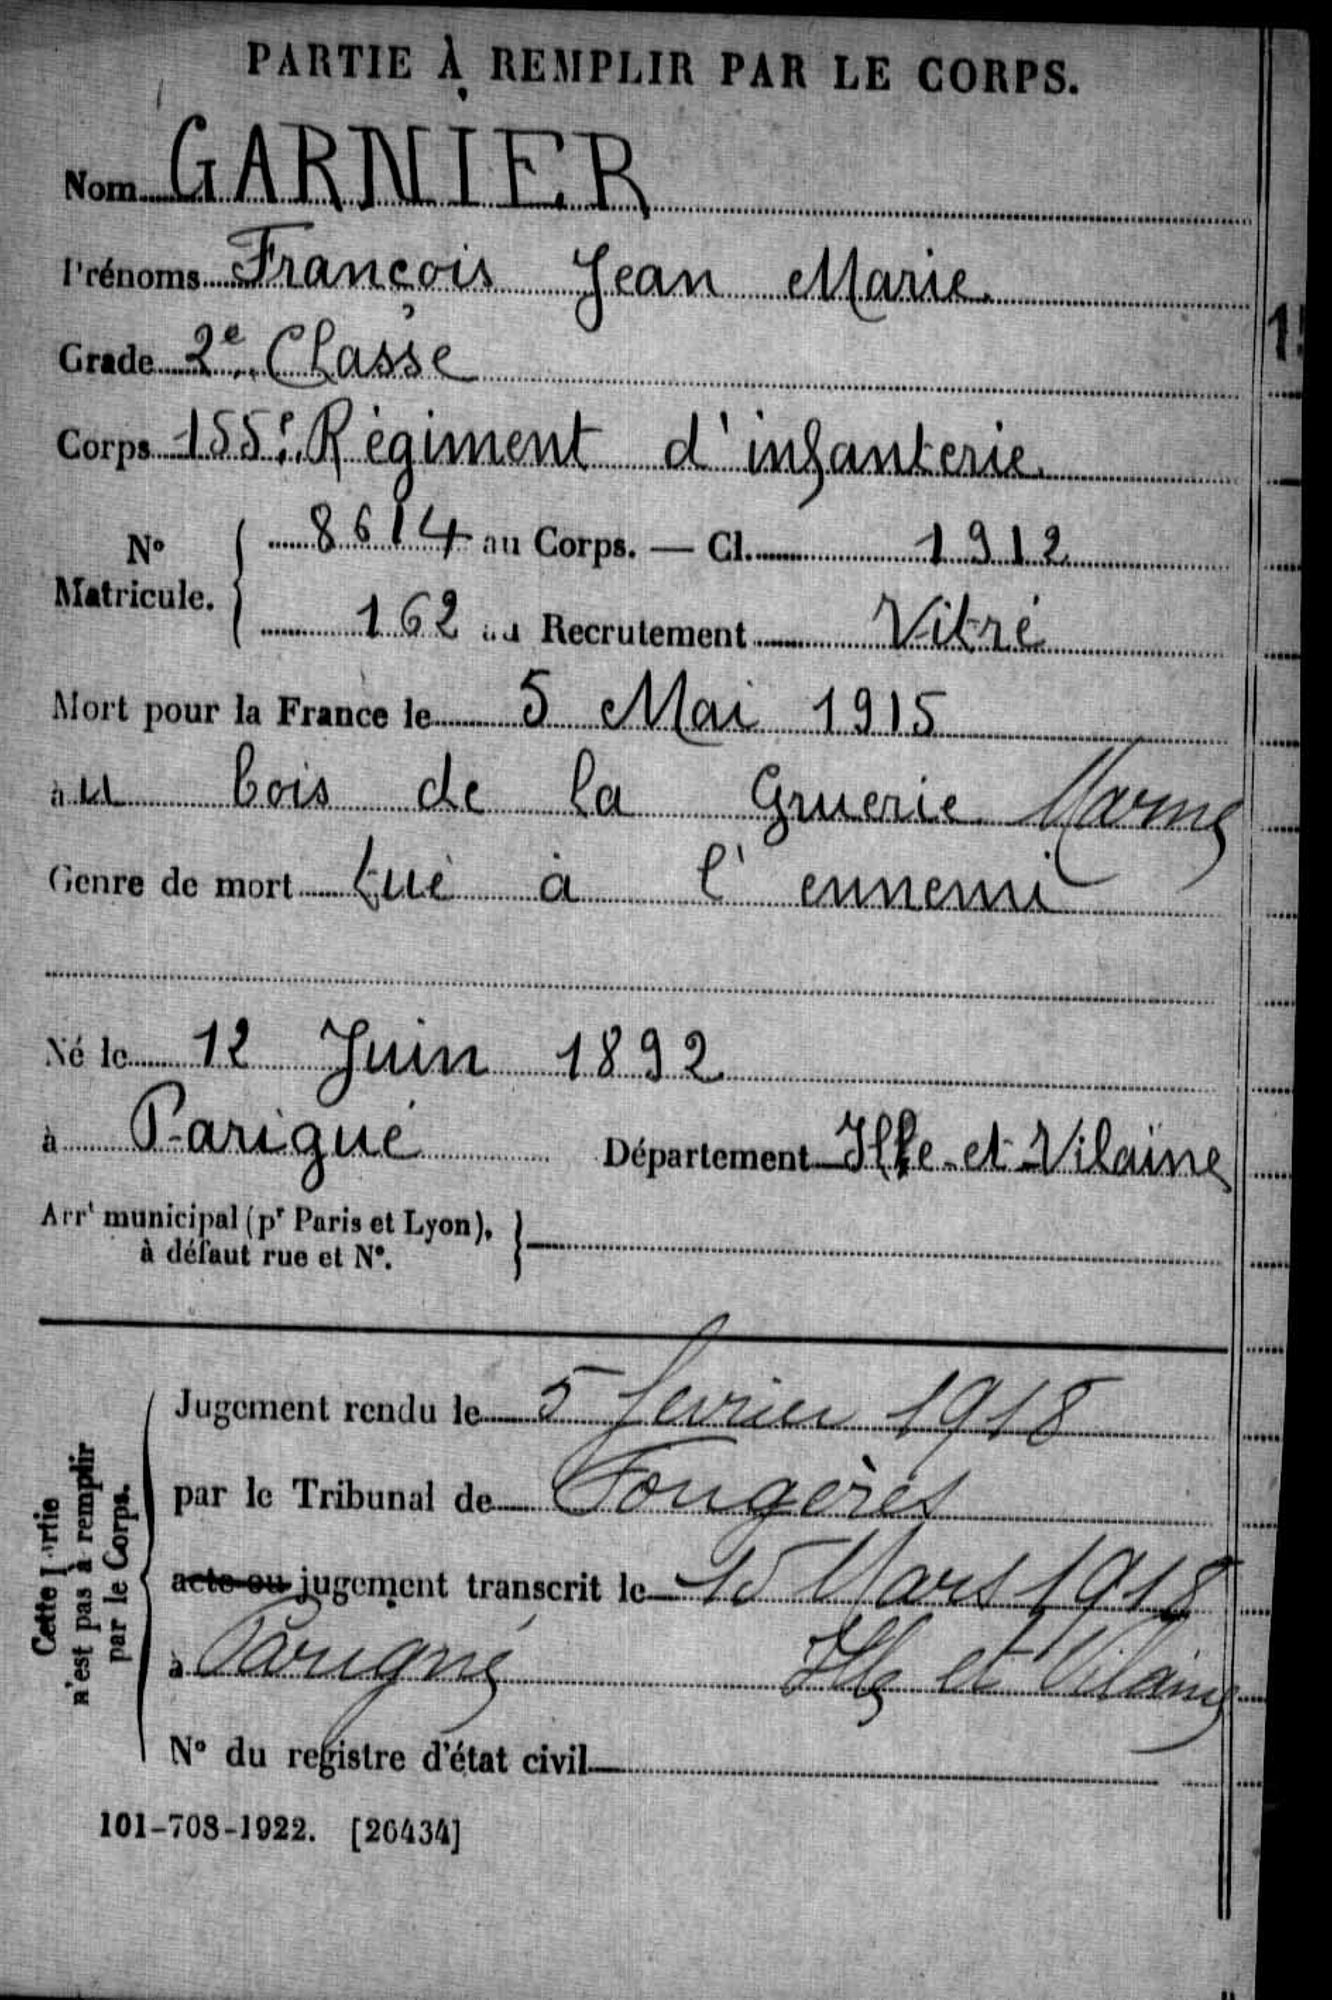 PARTIE À REMPLIR PAR LE CORPS.
Nom GARNIER
Prénoms François Jean Marie
Grade 2e Classe
Corps 155e Régiment d'infanterie
N° Matricule. 8614 au Corps. — Cl. 1912
162 au Recrutement Vitré
Mort pour la France le 5 Mai 1915
au bois de la Gruerie Marne
Genre de mort tué à l'ennemi
Né le 12 Juin 1892
à Parigué Département Ille-et-Vilaine
Arrt municipal (pr Paris et Lyon),
à défaut rue et N°.
Cette Partie
n'est pas à remplir
par le Corps.
Jugement rendu le 5 fevrier 1918
par le Tribunal de Fougères
acte ou jugement transcrit le 15 Mars 1918
à Parigné Ille et Vilaine
N° du registre d'état civil
101-708-1922. [26434]